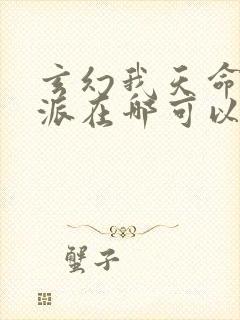 玄幻我天命
派在哪可以
蟹子